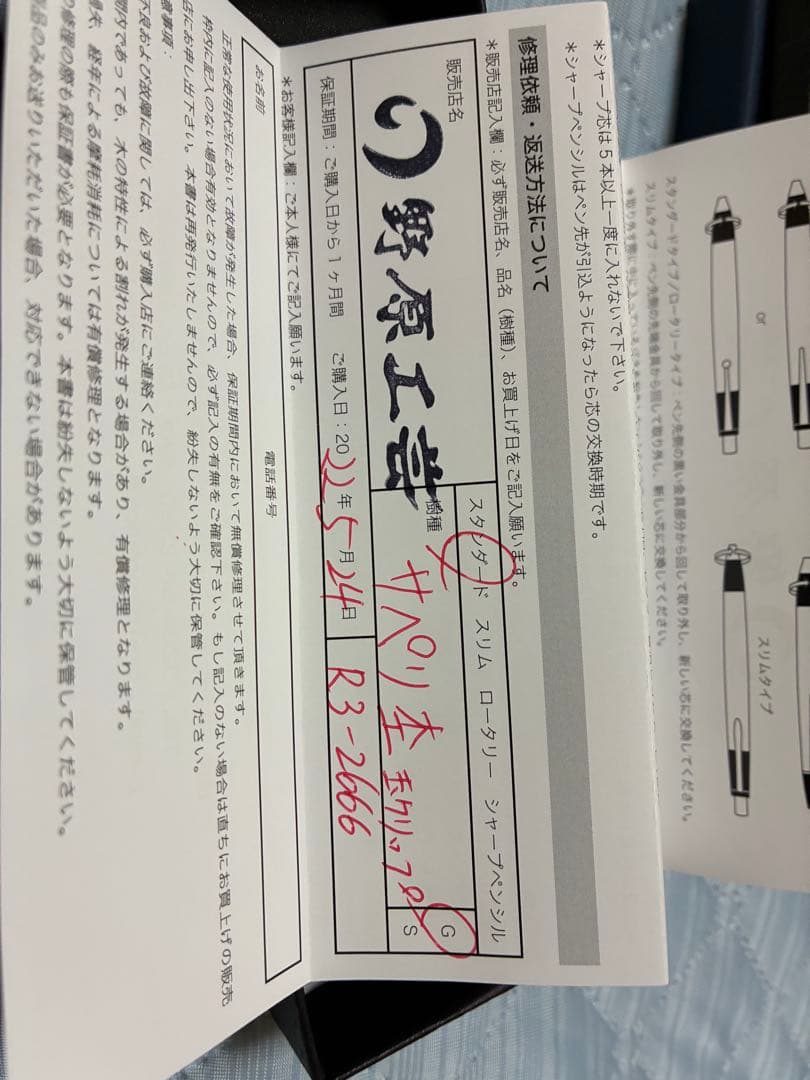 *シャープ芯は5本以上一度に入れないで下さい。
*シャープペンシルはペン先が引込ようになったら芯の交換時期です。
修理依頼・返送方法について
*販売店記入欄：必ず販売店名、品名（樹種）、お買上げ日をご記入願います。
販売店名
野原工芸
スタンダード スリム ロータリー シャープペンシル
樹種
サペリ杢 玉クリップ
G
S
保証期間：ご購入日から1ヶ月間 ご購入日：2022年5月24日
R3-2666
*お客様記入欄：ご本人様にてご記入願います。
お名前
電話番号
正常な使用状況において故障が発生した場合、保証期間内において無償修理させて頂きます。
枠内に記入のない場合有効となりませんので、必ず記入の有無をご確認下さい。もし記入のない場合は直ちにお買上げの販売
店にお申し出下さい。本書は再発行いたしませんので、紛失しないよう大切に保管してください。
事項：
不良および故障に関しては、必ず購入店にご連絡ください。
期内であっても、木の特性による割れが発生する場合があり、有償修理となります。
経年による摩耗消耗については有償修理となります。
修理の際も保証書が必要となります。本書は紛失しないよう大切に保管してください。
品のみお送りいただいた場合、対応できない場合があります。
スタンダードタイプ/ロータリータイプ：ペン先側の黒い金具部分から回して取り外し、新しい芯に交換してください。
スリムタイプ：ペン先側の先端金具から回して取り外し、新しい芯に交換してください。
or
スリムタイプ